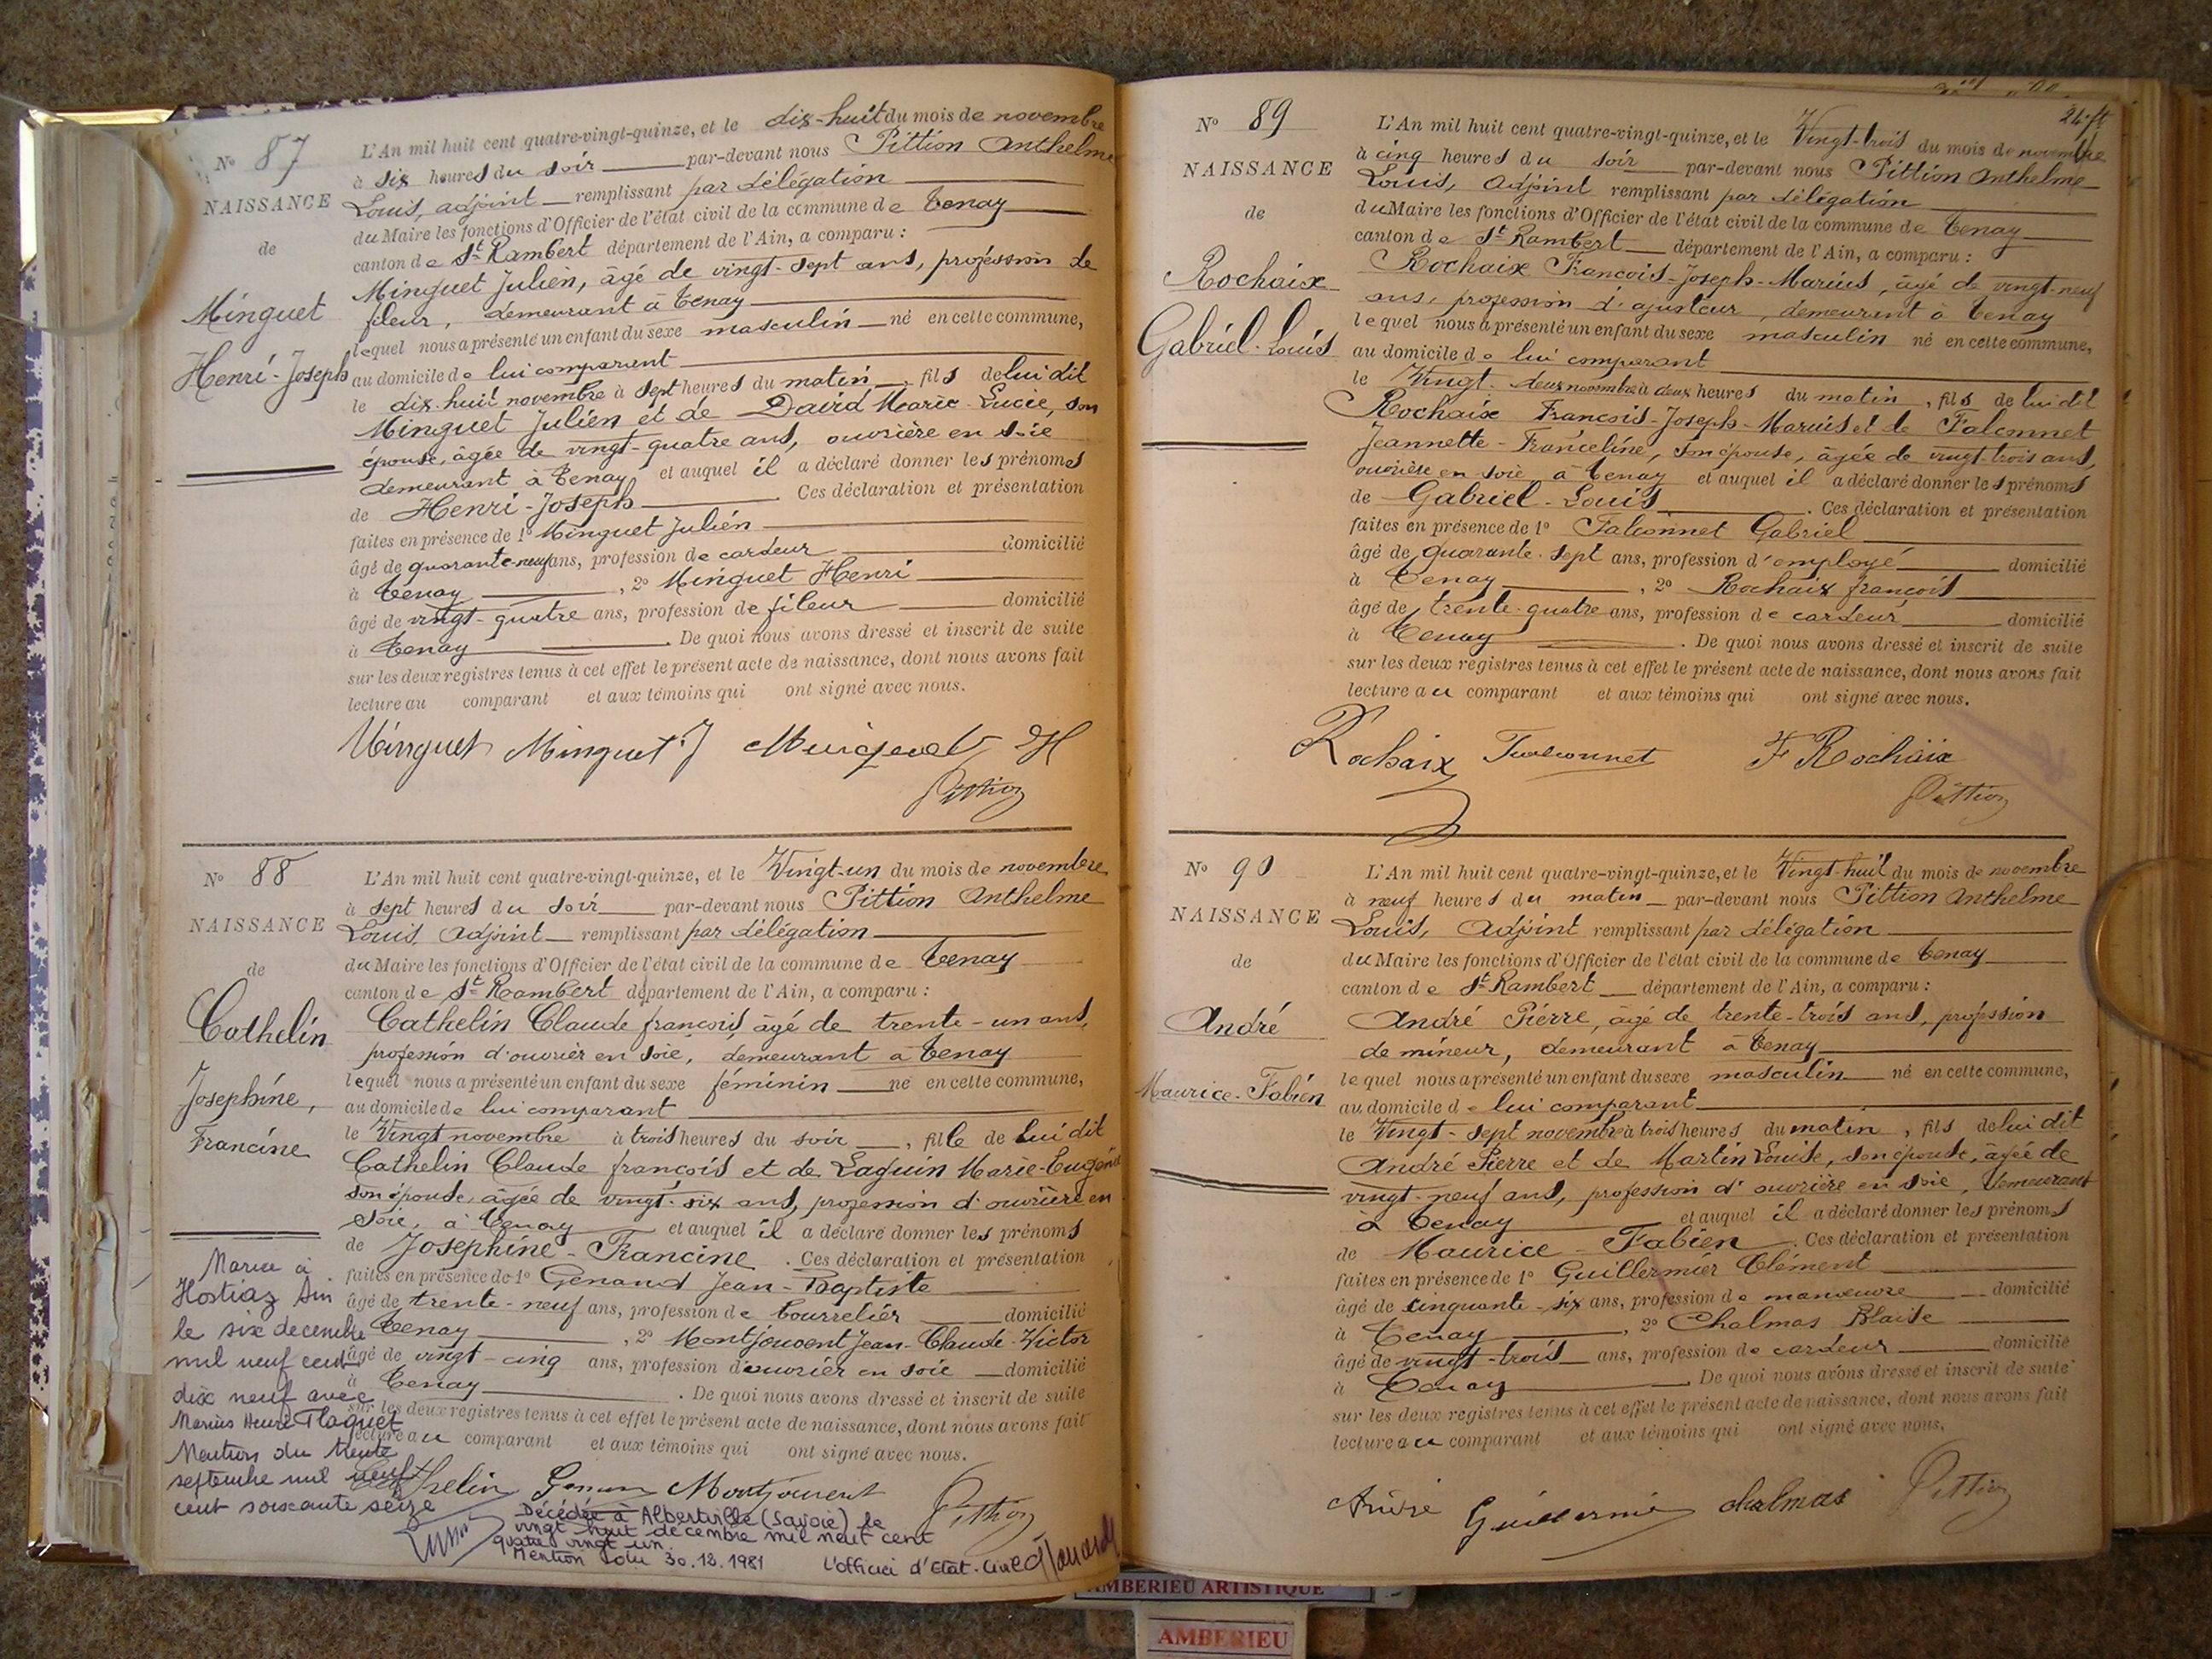 N° 87
NAISSANCE
de
Minguet
Henri-Joseph
L'An mil huit cent quatre-vingt-quinze, et le dix-huit du mois de novembre
à six heures du soir par-devant nous Pittion Anthelme
Louis, adjoint remplissant par délégation
du Maire les fonctions d'Officier de l'état civil de la commune de Tenay
canton de St Rambert département de l'Ain, a comparu :
Minguet Julien, âgé de vingt-sept ans, profession de
fileur, demeurant à Tenay
lequel nous a présenté un enfant du sexe masculin né en cette commune,
au domicile de lui comparant
le dix-huit novembre à sept heures du matin, fils de lui dit
Minguet Julien et de David Marie-Lucie, son
épouse, âgée de vingt-quatre ans, ouvrière en soie
demeurant à Tenay et auquel il a déclaré donner les prénoms
de Henri-Joseph. Ces déclaration et présentation
faites en présence de 1° Minguet Julien
âgé de quarante-neuf ans, profession de cardeur domicilié
à Tenay, 2° Minguet Henri
âgé de vingt-quatre ans, profession de fileur domicilié
à Tenay. De quoi nous avons dressé et inscrit de suite
sur les deux registres tenus à cet effet le présent acte de naissance, dont nous avons fait
lecture au comparant et aux témoins qui ont signé avec nous.
Minguet Minguet J Minguet H
Pittion
N° 88
NAISSANCE
de
Cathelin
Josephine,
Francine
L'An mil huit cent quatre-vingt-quinze, et le Vingt-un du mois de novembre
à sept heures du soir par-devant nous Pittion Anthelme
Louis, adjoint remplissant par délégation
du Maire les fonctions d'Officier de l'état civil de la commune de Tenay
canton de St Rambert département de l'Ain, a comparu :
Cathelin Claude françois, âgé de trente-un ans,
profession d'ouvrier en soie, demeurant à Tenay
lequel nous a présenté un enfant du sexe féminin né en cette commune,
au domicile de lui comparant
le Vingt novembre à trois heures du soir, fille de lui dit
Cathelin Claude françois et de Laguin Marie-Eugénie
son épouse, âgée de vingt-six ans, profession d'ouvrière en
soie, à Tenay et auquel il a déclaré donner les prénoms
de Josephine-Francine. Ces déclaration et présentation
faites en présence de 1° Genand Jean-Baptiste
âgé de trente-neuf ans, profession de bourrelier domicilié
à Tenay, 2° Montjouvent Jean-Claude-Victor
âgé de vingt-cinq ans, profession d'ouvrier en soie domicilié
à Tenay. De quoi nous avons dressé et inscrit de suite
sur les deux registres tenus à cet effet le présent acte de naissance, dont nous avons fait
lecture au comparant et aux témoins qui ont signé avec nous.
Cathelin Montjouvent Pittion
Mariée à
Hostiaz Ain
le six decembre
mil neuf cent
dix neuf avec
Marius Henri Plaquet
Mention du trente
septembre mil neuf
cent soixante seize
Décédée à Albertville (Savoie) le
vingt huit decembre mil neuf cent
quatre vingt un.
Mention du 30.12.1981 L'officier d'Etat-Civil
24 ft
N° 89
NAISSANCE
de
Rochaix
Gabriel-Louis
L'An mil huit cent quatre-vingt-quinze, et le Vingt-trois du mois de novembre
à cinq heures du soir par-devant nous Pittion Anthelme
Louis, adjoint remplissant par délégation
du Maire les fonctions d'Officier de l'état civil de la commune de Tenay
canton de St Rambert département de l'Ain, a comparu :
Rochaix François-Joseph-Marius, âgé de vingt-neuf
ans, profession d'ajusteur, demeurant à Tenay
lequel nous a présenté un enfant du sexe masculin né en cette commune,
au domicile de lui comparant
le Vingt-deux novembre à deux heures du matin, fils de lui dit
Rochaix François-Joseph-Marius et de Falconnet
Jeannette-Franceline, son épouse, âgée de vingt-trois ans,
ouvrière en soie à Tenay et auquel il a déclaré donner les prénoms
de Gabriel-Louis. Ces déclaration et présentation
faites en présence de 1° Falconnet Gabriel
âgé de quarante-sept ans, profession d'employé domicilié
à Tenay, 2° Rochaix françois
âgé de trente-quatre ans, profession de cardeur domicilié
à Tenay. De quoi nous avons dressé et inscrit de suite
sur les deux registres tenus à cet effet le présent acte de naissance, dont nous avons fait
lecture au comparant et aux témoins qui ont signé avec nous.
Rochaix Falconnet F Rochaix
Pittion
N° 90
NAISSANCE
de
André
Maurice-Fabien
L'An mil huit cent quatre-vingt-quinze, et le Vingt-huit du mois de novembre
à neuf heures du matin par-devant nous Pittion Anthelme
Louis, adjoint remplissant par délégation
du Maire les fonctions d'Officier de l'état civil de la commune de Tenay
canton de St Rambert département de l'Ain, a comparu :
André Pierre, âgé de trente-trois ans, profession
de mineur, demeurant à Tenay
lequel nous a présenté un enfant du sexe masculin né en cette commune,
au domicile de lui comparant
le Vingt-sept novembre à trois heures du matin, fils de lui dit
André Pierre et de Martin Louise, son épouse, âgée de
vingt-neuf ans, profession d'ouvrière en soie, demeurant
à Tenay et auquel il a déclaré donner les prénoms
de Maurice-Fabien. Ces déclaration et présentation
faites en présence de 1° Guillermier Clément
âgé de cinquante-six ans, profession de manœuvre domicilié
à Tenay, 2° Chalmas Blaise
âgé de vingt-trois ans, profession de cardeur domicilié
à Tenay. De quoi nous avons dressé et inscrit de suite
sur les deux registres tenus à cet effet le présent acte de naissance, dont nous avons fait
lecture au comparant et aux témoins qui ont signé avec nous.
Guillermier chalmas Pittion
AMBERIEU ARTISTIQUE
AMBERIEU